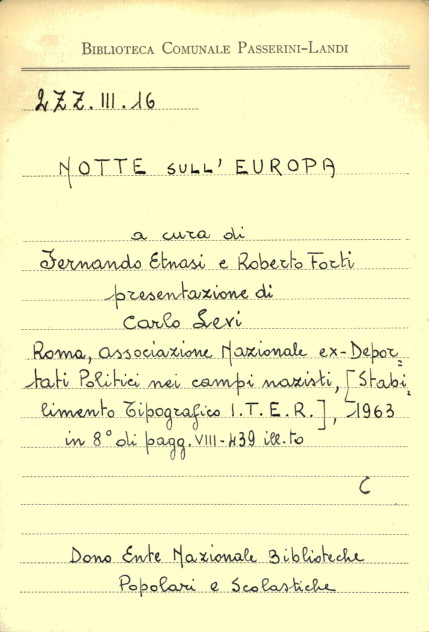 BIBLIOTECA COMUNALE PASSERINI-LANDI
2ZZ.III.16
NOTTE SULL'EUROPA
a cura di
Fernando Etnasi e Roberto Forti
presentazione di
Carlo Levi
Roma, Associazione Nazionale ex-Depor=
tati Politici nei campi nazisti, [Stabi=
limento Tipografico I.T.E.R.], 1963
in 8° di pagg. VIII-439 ill.to
C
Dono Ente Nazionale Biblioteche
Popolari e Scolastiche